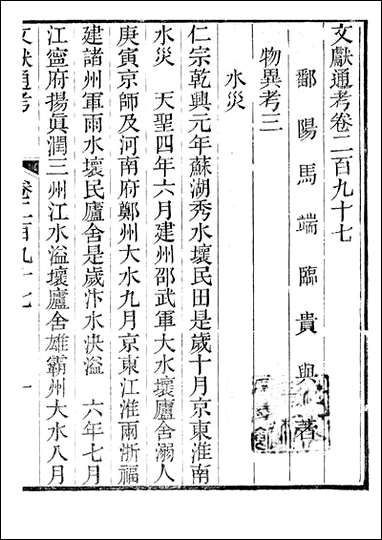 文獻通考卷二百九十七
鄱陽馬端臨貴與著
物異考三
水災
仁宗乾興元年蘇湖秀水壞民田是歲十月京東淮南
水災　天聖四年六月建州邵武軍大水壞廬舍溺人
庚寅京師及河南府鄭州大水九月京東江淮雨浙福
建諸州軍雨水壞民廬舍是歲汴水決溢　六年七月
江寧府揚眞潤三州江水溢壞廬舍雄霸州大水八月
文獻通考　卷二百九十七　一